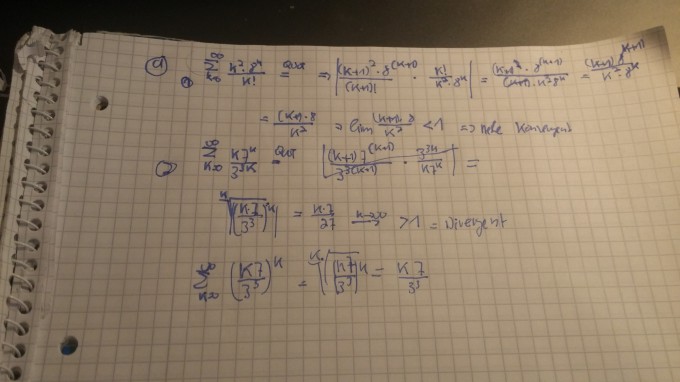 a) ∑_{k=0}^{∞} k²·8^k / k! = Quot ⇒ |(k+1)²·8^(k+1) / (k+1)! · k! / k²·8^k| = (k+1)²·8^(k+1) / (k+1)·k²8^k = (k+1)8^(k+1) / k²·8^k
= (k+1)·8 / k² ⇒ lim (k+1)·8 / k² < 1 ⇒ Konvergent
∑_{k=0}^{∞} k7^k / 3^{3k} = Quot |(k+1)7^(k+1) / 3^{3(k+1)} · 3^{3k} / k7^k| =
^k√|(k·7 / 3³)^k| = k·7 / 27 k→∞ > 1 = Divergent
∑_{k=0}^{∞} (k7 / 3³)^k = ^k√(k7 / 3³)^k = k7 / 3³